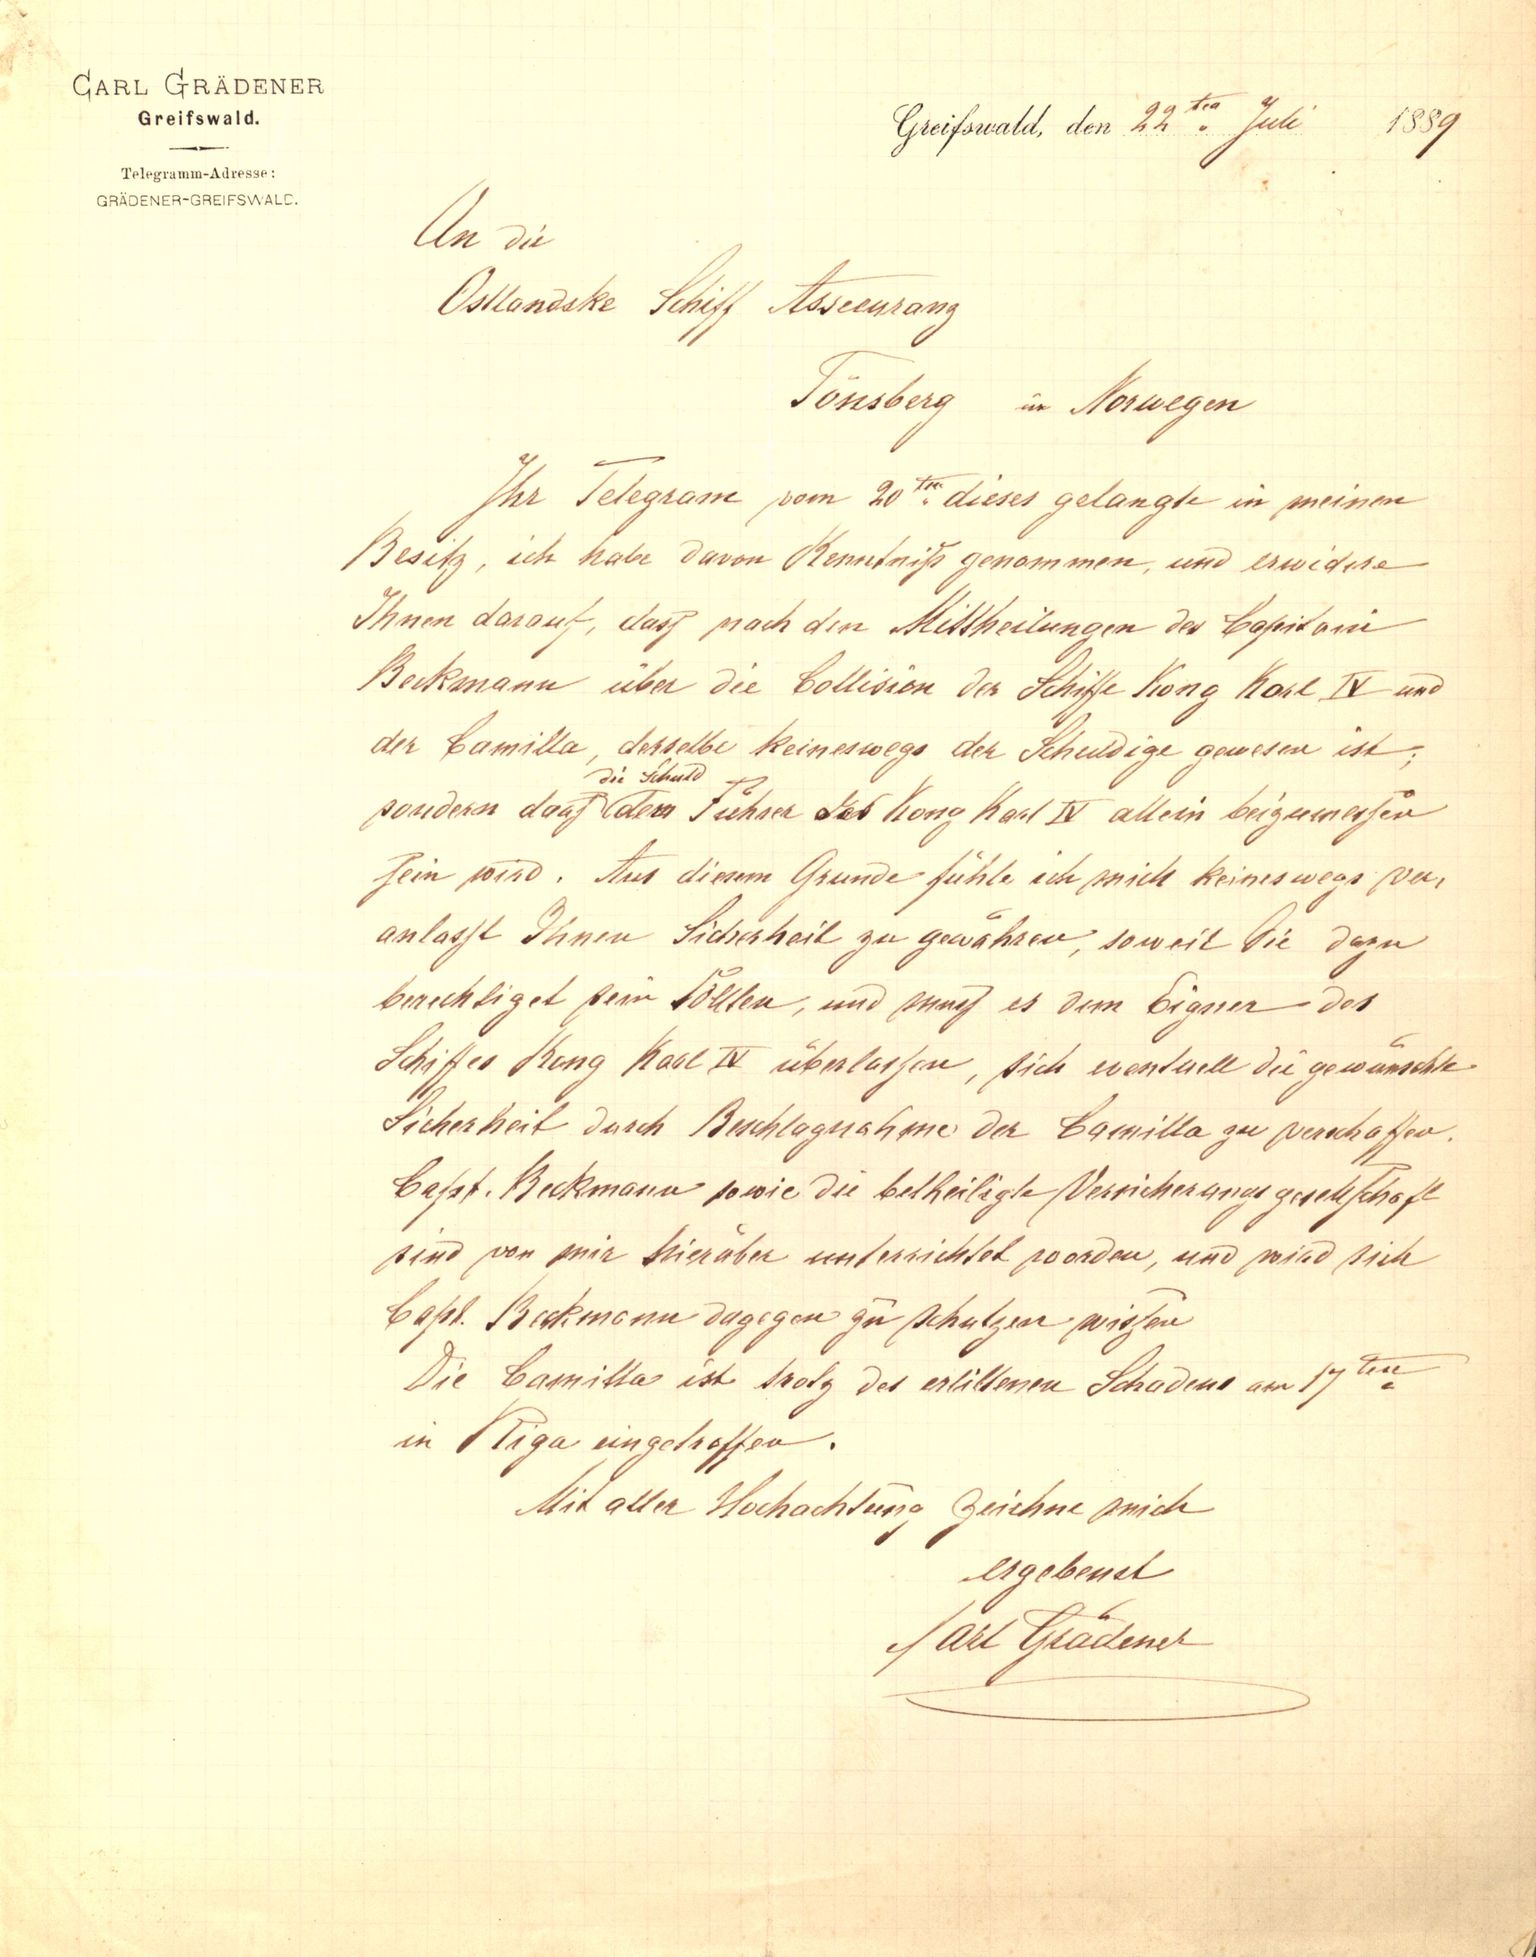 CARL GRÄDENER
Greifswald.
Telegramm-Adresse:
GRÄDENER-GREIFSWALD.
Greifswald, den 22ten Juli 1889
An die
Ostlandske Schiff Assecuranz
Tönsberg in Norwegen
Ihr Telegram vom 20ten dieses gelangte in meinen
Besitz, ich habe davon Kenntniß genommen, und erwidere
Ihnen darauf, dass nach den Mittheilungen des Capitain
Beckmann über die Collision der Schiffe Kong Karl IV und
der Camilla, derselbe keineswegs der Schuldige gewesen ist;
die Schuld
sondern dass dem Führer des Kong Karl IV allein beizumessen
sein wird. Aus diesem Grunde fühle ich mich keineswegs ver,
anlasst Ihnen Sicherheit zu gewähren, soweit Sie dazu
berechtiget sein sollten, und muss es dem Eigner des
Schiffes Kong Karl IV überlassen, sich eventuell die gewünschte
Sicherheit durch Beschlagnahme der Camilla zu verschaffen.
Capt. Beckmann sowie die betheiligte Versicherungsgesellschaft
sind von mir hierüber unterrichtet worden, und wird sich
Capt. Beckmann dagegen zu schutzen wissen
Die Camilla ist trotz des erlittenen Schadens am 17ten
in Riga eingetroffen.
Mit aller Hochachtung zeichne mich
ergebenst
Carl Grädener